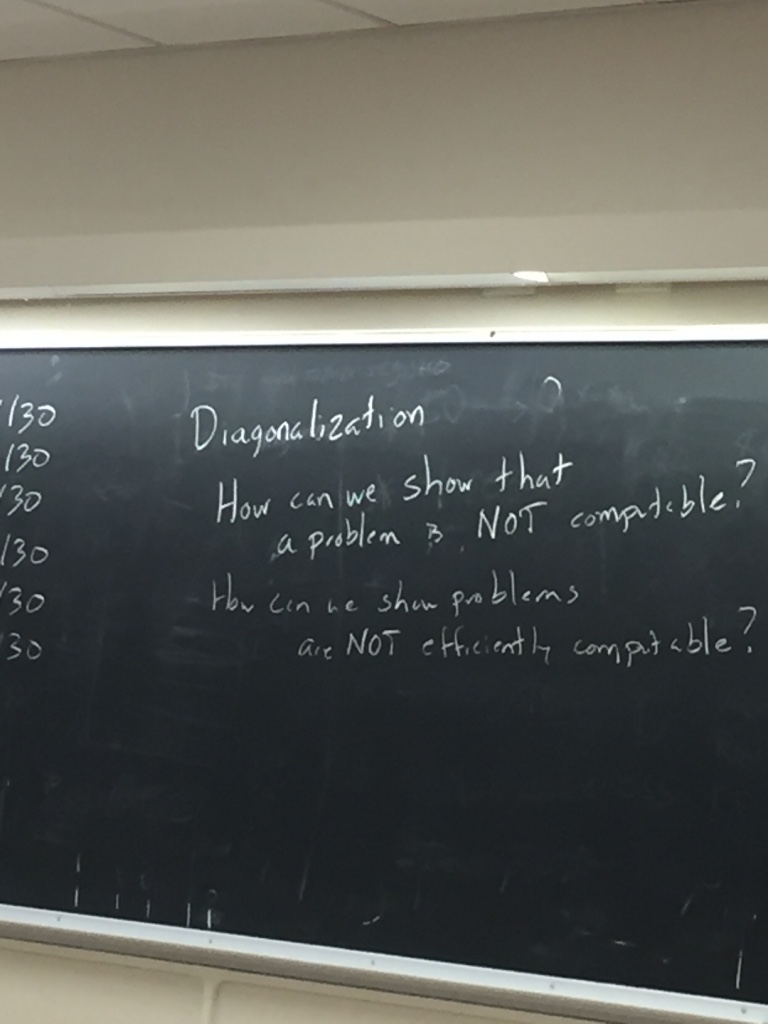 /30
/30
/30
/30
/30
30
Diagonalization
How can we show that
a problem is NOT computable?
How can we show problems
are NOT efficiently computable?